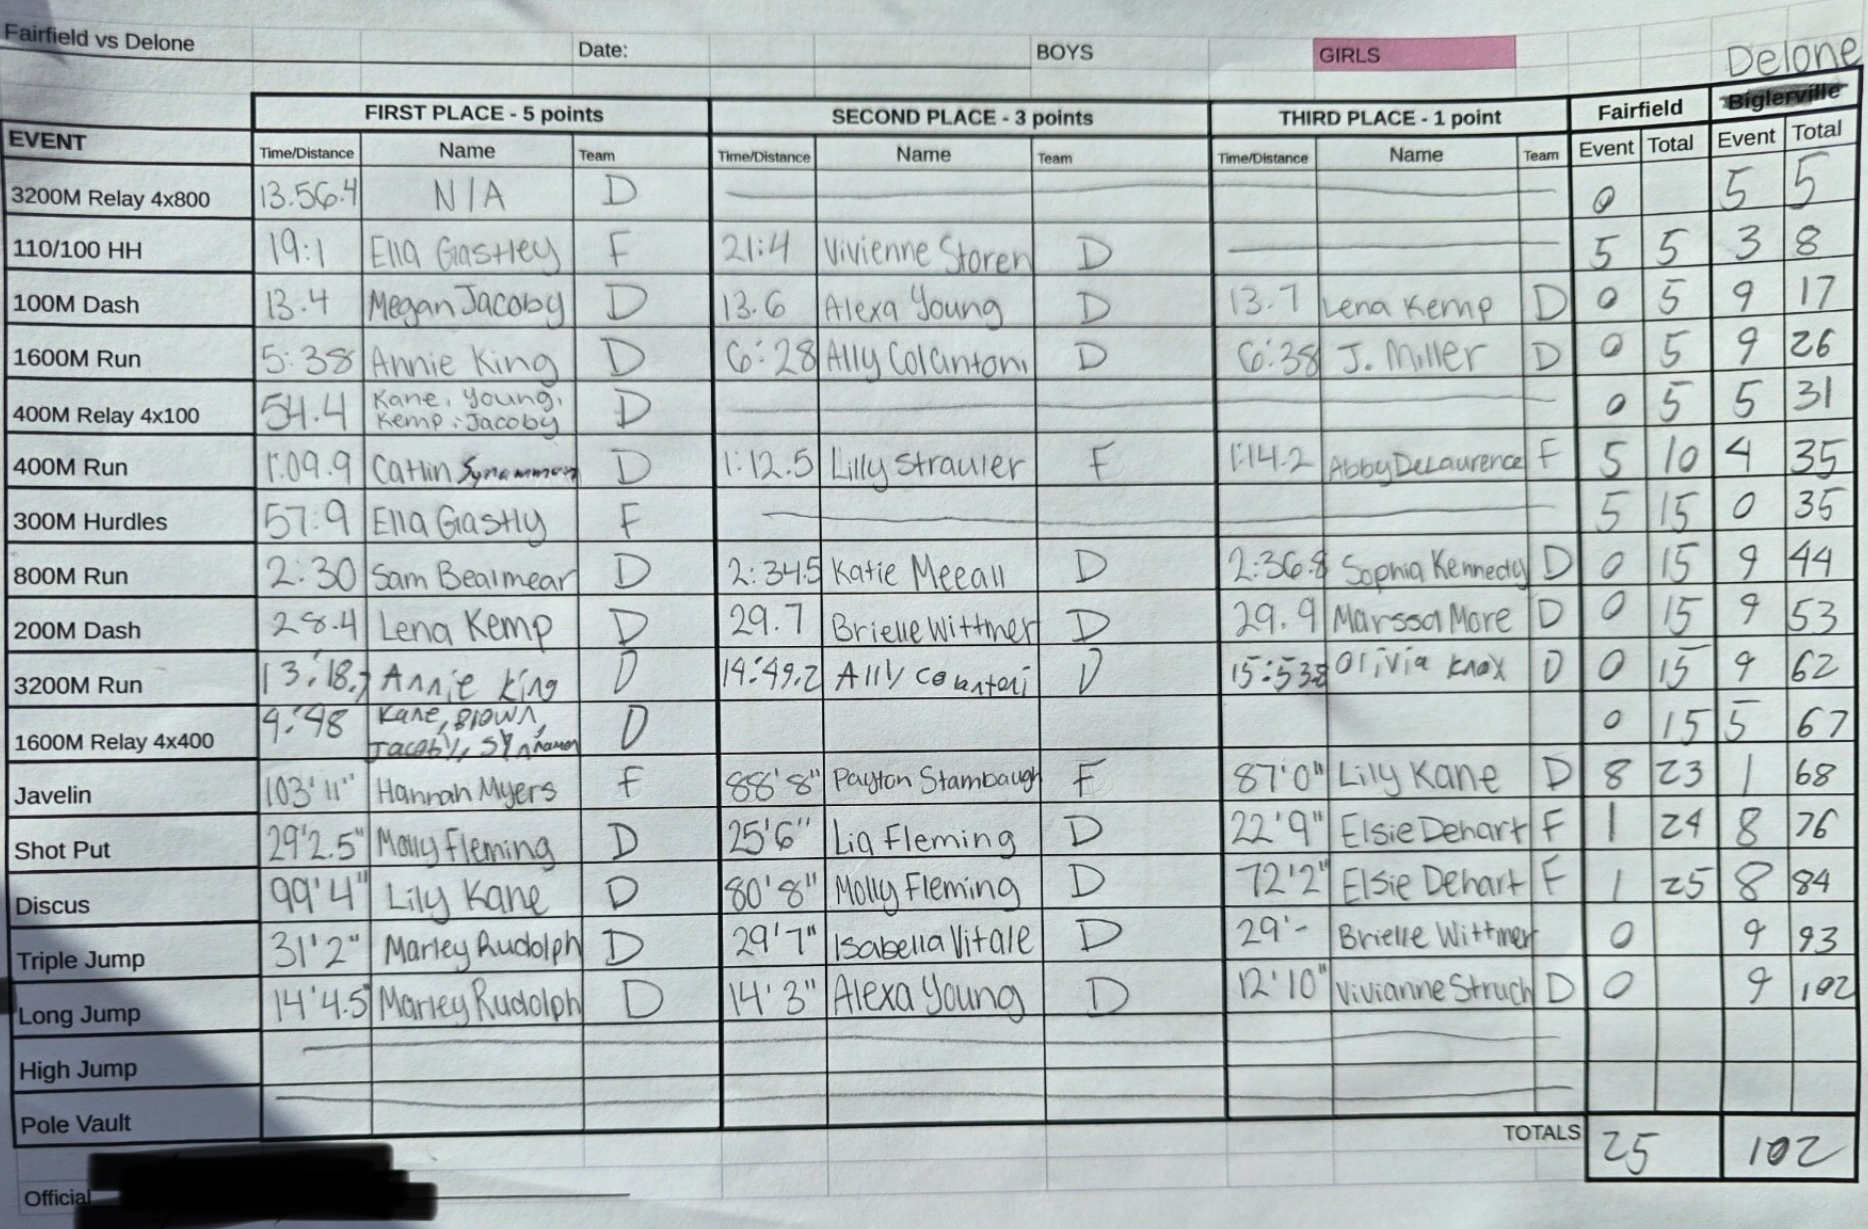 Fairfield vs Delone Date: BOYS GIRLS Delone
FIRST PLACE - 5 points SECOND PLACE - 3 points THIRD PLACE - 1 point Fairfield Biglerville
EVENT Time/Distance Name Team Time/Distance Name Team Time/Distance Name Team Event Total Event Total
3200M Relay 4x800 13.56.4 N/A D 0 5 5
110/100 HH 19:1 Ella Gastley F 21:4 Vivienne Storen D 5 5 3 8
100M Dash 13.4 Megan Jacoby D 13.6 Alexa Young D 13.7 Lena Kemp D 0 5 9 17
1600M Run 5:38 Annie King D 6:28 Ally Colantoni D 6:38 J. Miller D 0 5 9 26
400M Relay 4x100 54.4 Kane, Young,
Kemp, Jacoby D 0 5 5 31
400M Run 1:09.9 Catlin Synammon D 1:12.5 Lilly Strauler F 1:14.2 Abby DeLaurence F 5 10 4 35
300M Hurdles 57:9 Ella Gastly F 5 15 0 35
800M Run 2:30 Sam Bealmear D 2:34.5 Katie Meeall D 2:36.8 Sophia Kennedy D 0 15 9 44
200M Dash 28.4 Lena Kemp D 29.7 Brielle Wittmer D 29.9 Marssa More D 0 15 9 53
3200M Run 13:18.7 Annie King D 14:49.2 Ally Colantori D 15:53.8 Olivia Knox D 0 15 9 62
1600M Relay 4x400 4:48 Kane, Brown,
Jacoby, Synnamon D 0 15 5 67
Javelin 103'11" Hannah Myers F 88'8" Payton Stambaugh F 87'0" Lily Kane D 8 23 1 68
Shot Put 29'2.5" Molly Fleming D 25'6" Lia Fleming D 22'9" Elsie Dehart F 1 24 8 76
Discus 99'4" Lily Kane D 80'8" Molly Fleming D 72'2" Elsie Dehart F 1 25 8 84
Triple Jump 31'2" Marley Rudolph D 29'7" Isabella Vitale D 29'- Brielle Wittmer 0 9 93
Long Jump 14'4.5" Marley Rudolph D 14'3" Alexa Young D 12'10" Vivianne Struch D 0 9 102
High Jump
Pole Vault
TOTALS 25 102
Official